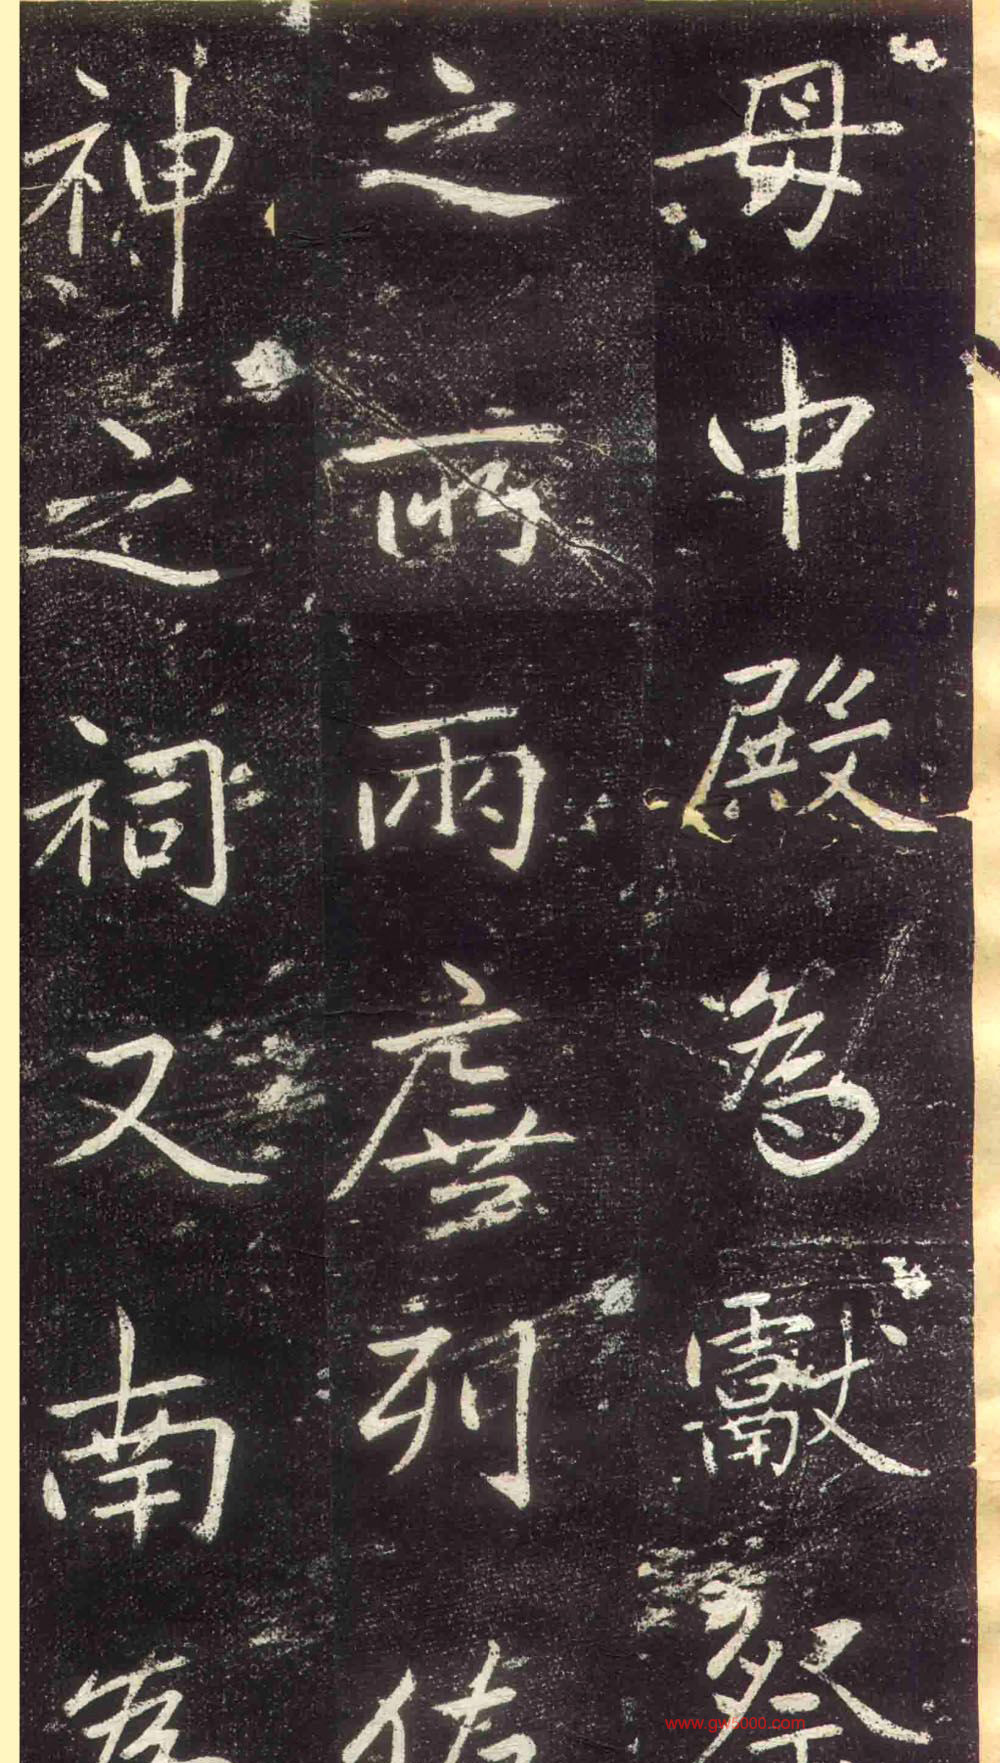 母中殿為獻祭
之所兩廡列佐
神之祠又南為
www.gw5000.com